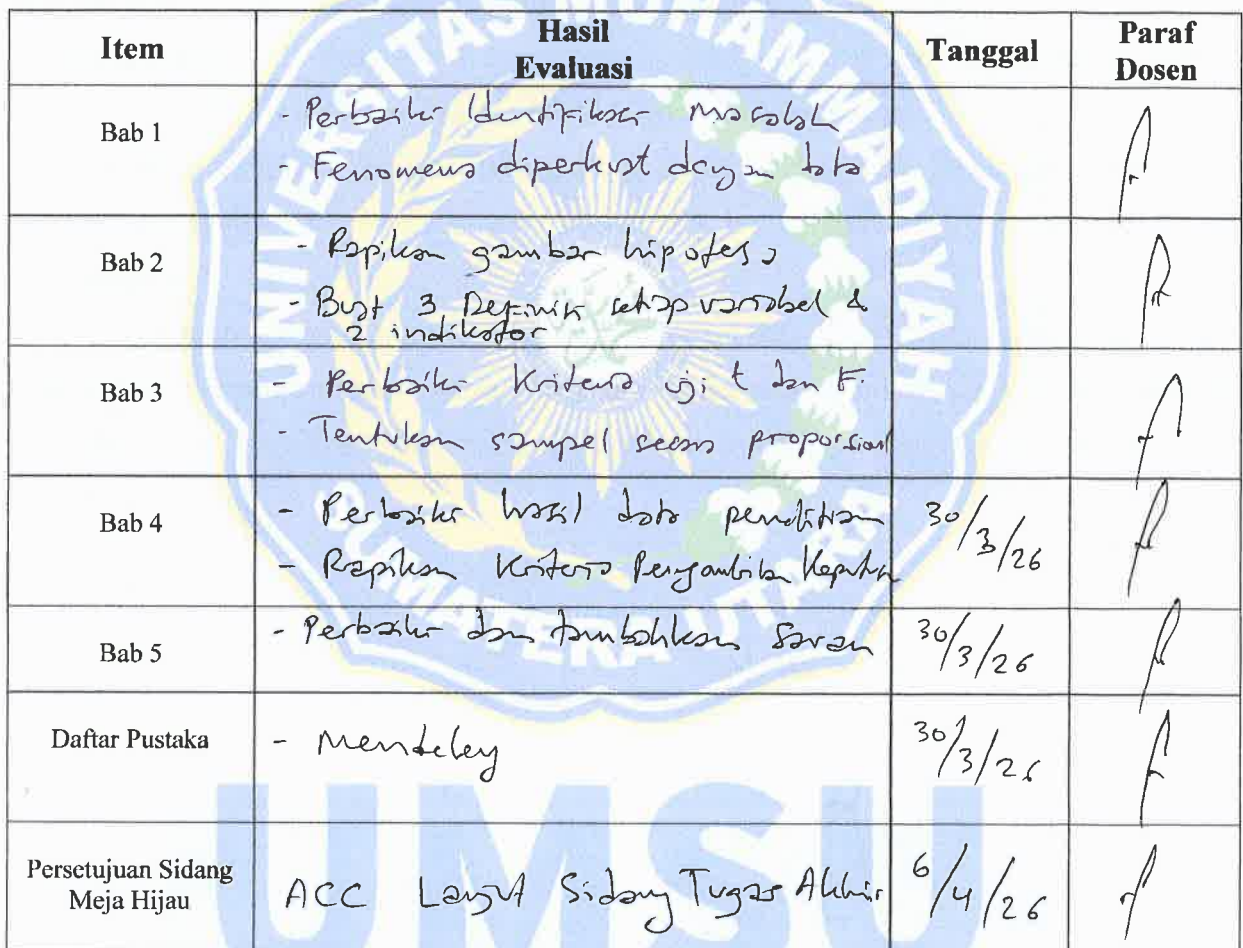 Item Hasil Evaluasi Tanggal Paraf Dosen
Bab 1
- Perbaiki Identifikasi Masalah
- Fenomena diperkuat dengan data
Bab 2
- Rapikan gambar hipotesa
- Buat 3 Definisi setiap variabel &
2 indikator
Bab 3
- Perbaiki Kriteria uji t dan F.
- Tentukan sampel secara proporsional
Bab 4
- Perbaiki hasil data penelitian 30/3/26
- Rapikan Kriteria Pengambilan
Bab 5
- Perbaiki dan tambahkan Saran 30/3/26
Daftar Pustaka
- Mendeley 30/3/26
Persetujuan Sidang
Meja Hijau
ACC Lanjut Sidang Tugas Akhir 6/4/26
UNIVERSITAS MUHAMMADIYAH
SUMATERA UTARA
UMSU